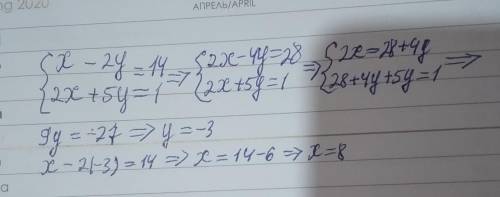 ng 2020
АПРЕЛЬ/APRIL
{x - 2y = 14 => {2x - 4y = 28 => {2x = 28 + 4y =>
{2x + 5y = 1 {2x + 5y = 1 {28 + 4y + 5y = 1
9y = -27 => y = -3
x - 2(-3) = 14 => x = 14 - 6 => x = 8